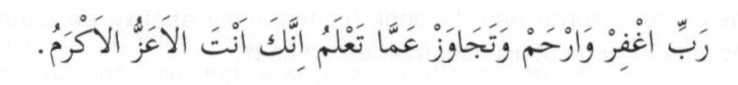 رَبِّ اغْفِرْ وَارْحَمْ وَتَجَاوَزْ عَمَّا تَعْلَمُ اِنَّكَ اَنْتَ الاَعَزُّ الاَكْرَمُ.